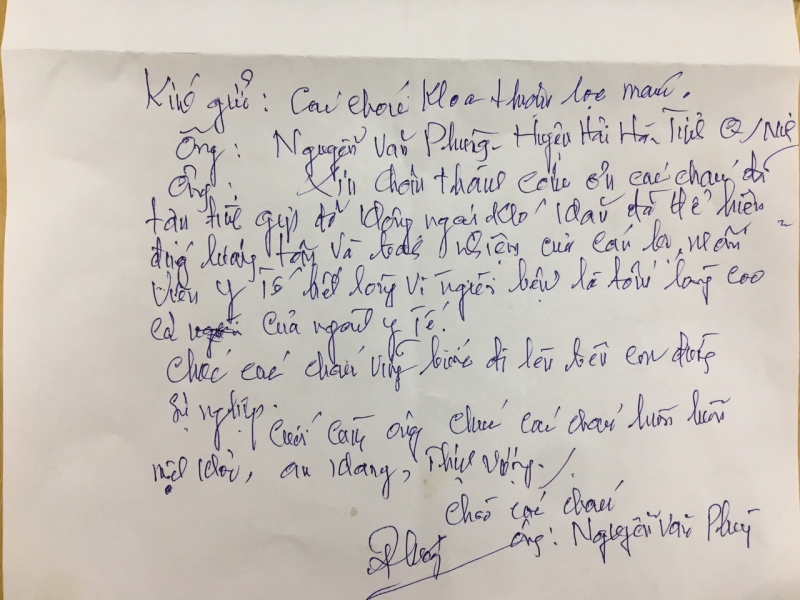 Kính gửi: Các cháu Khoa thận lọc máu.
Ông: Nguyễn Văn Phung - Huyện Hải Hà - Tỉnh Q/Ninh
Ông: Xin chân thành cảm ơn các cháu đã
tận tình giúp đỡ không ngại khó khăn đã thể hiện
đúng lương tâm và trách nhiệm của cán bộ, nhân
viên y Tế hết lòng vì người bệnh là tấm lòng cao
cả của người y Tế.
Chúc các cháu vững bước đi lên trên con đường
sự nghiệp.
Cuối cùng ông chúc các cháu luôn luôn
mạnh khỏe, an khang, Thịnh vượng./
Chào các cháu
Ông: Nguyễn Văn Phung